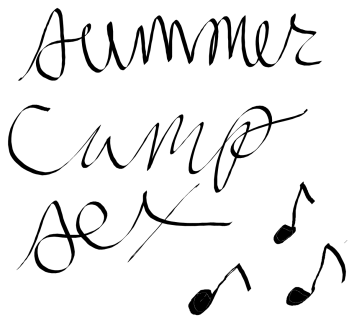 summer
Camp
sex